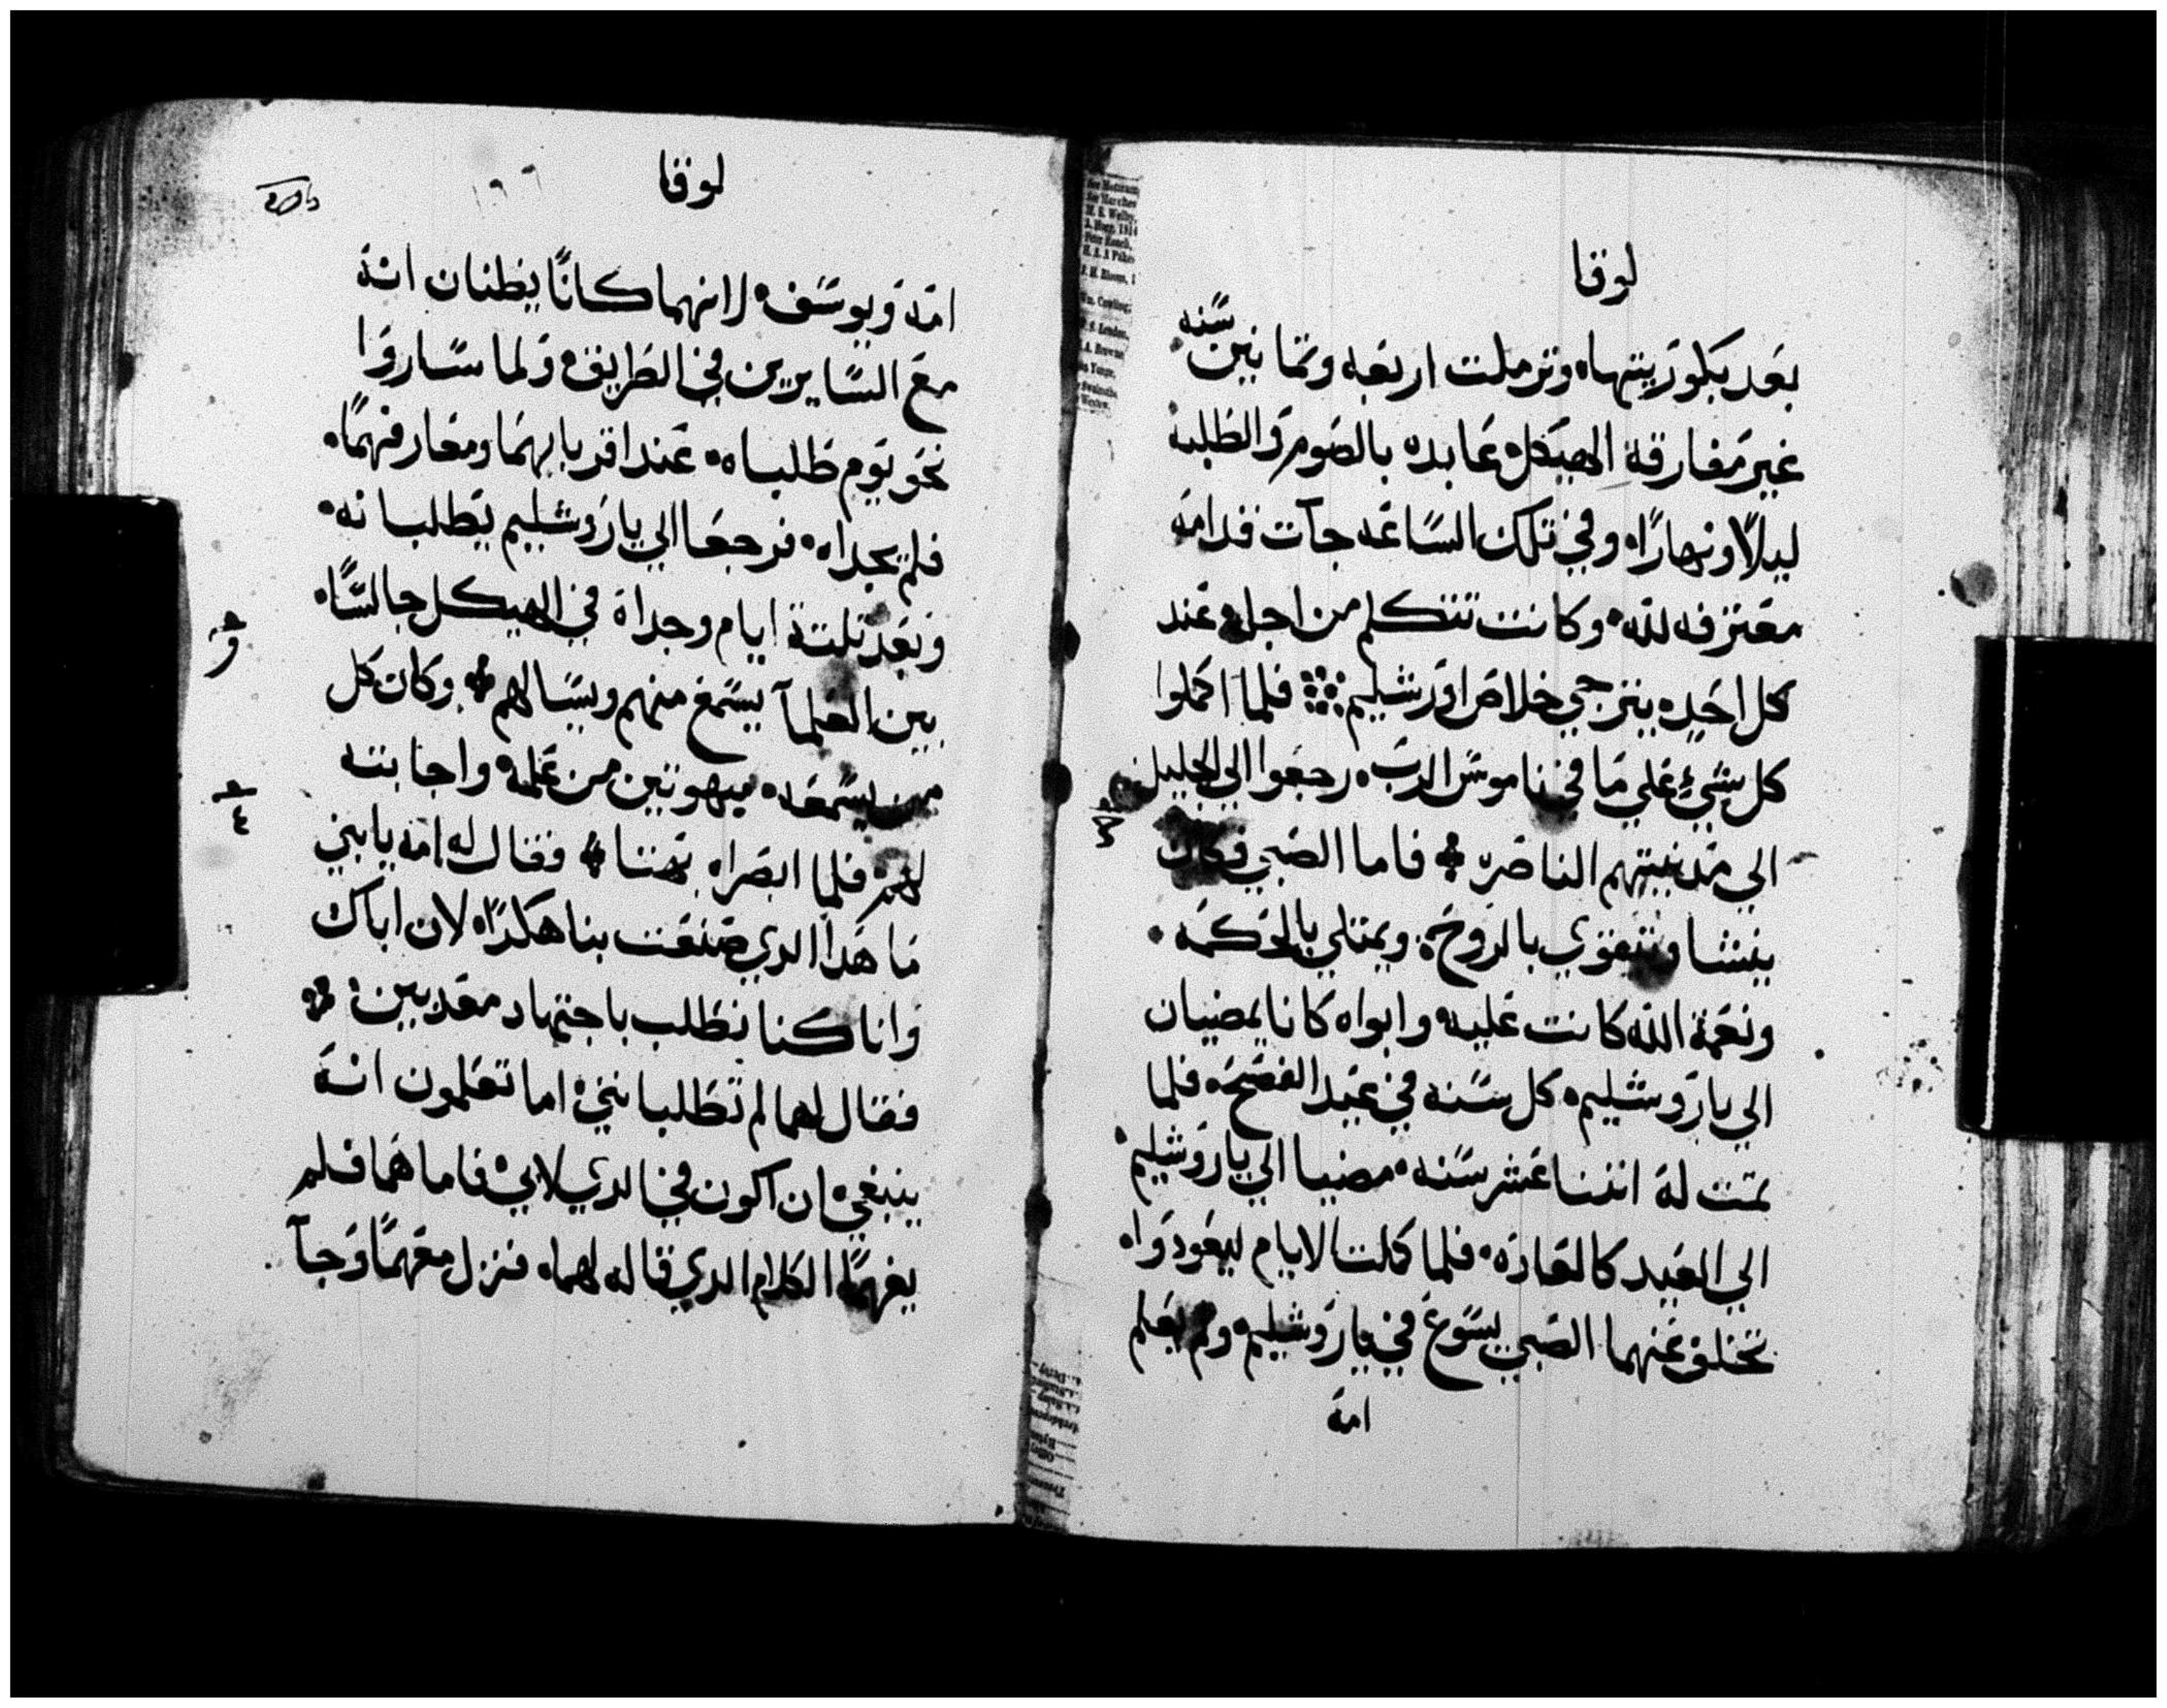 لوقا
بعد بكوريتهاه وترملت اربعه وثمانين سنه
غير مفارقة الهيكل عابده بالصوم والطلبة
ليلاً ونهاراه وفي تلك الساعه جآت قدامه
معترفه لله وكانت تتكلم من اجله عند
كل احد يترجي خلاص اورشليم فلما اكملوا
كل شيء علي ما في ناموس الرب رجعوا الي الجليل
الي مدينتهم الناصره فاما الصبي فكان
ينشا ويتقوي بالروح ويمتلي بالحكمه
ونعمة الله كانت عليه وابواه كانا يمضيان
الي ياروشليم كل سنه في عيد الفصح فلما
تمت له اثنتا عشر سنه مضيا الي ياروشليم
الي العيد كالعاده فلما كملت الايام ليعودواه
تخلف عنهما الصبي يسوع في ياروشليم ولم يعلم
امه
لوقا
١٩٦
امه ويوسف لانهما كانا يظنان انه
مع السايرين في الطريق ولما ساروا
نحو يوم طلباه عند اقربايهما ومعارفهما
فلم يجداه فرجعا الي ياروشليم يطلبانه
وبعد تلتة ايام وجداه في الهيكل جالساه
بين العلمآ يسمع منهم ويسالهم وكان كل
من يسمعه مبهوتين من علمه واجابته
لهم فلما ابصراه بهتا فقال له امه يابني
ما هدا الدي صنعت بنا هكداه لان اباك
وانا كنا نطلب باجتهاد معدبين
فقال لهما لم تطلباني اما تعلمون انه
ينبغي ان اكون في الدي لابي فاما هما فلم
يفهما الكلام الدي قاله لهماه فنزل معهما وجآ